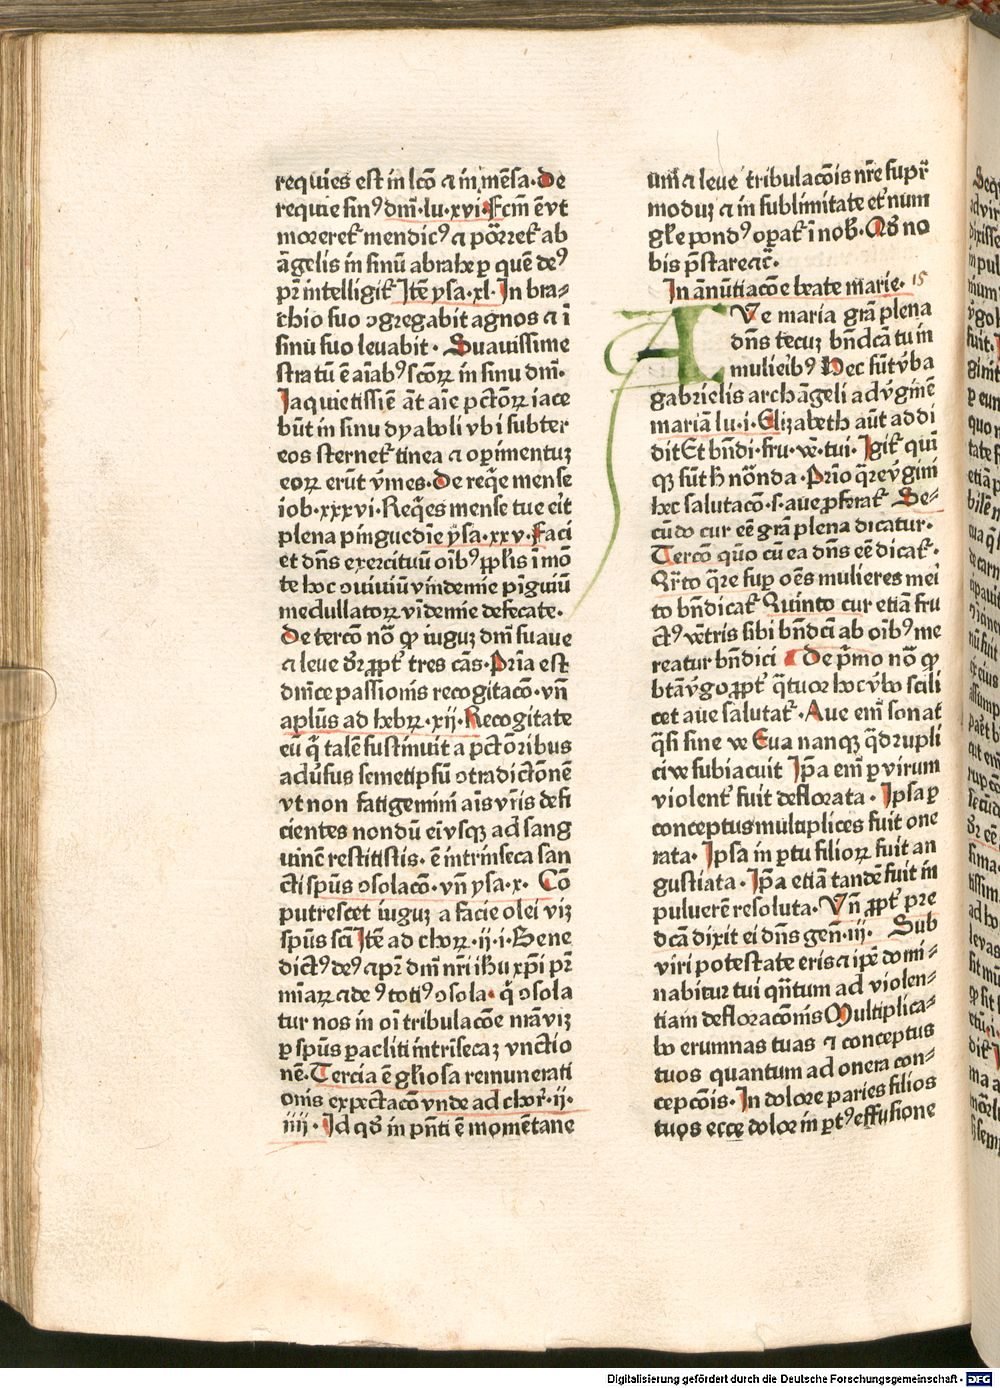 requies est in lcō ⁊ in mēsa·De
requie sinꝰ dn̄i·lu·xvi·Fcm̄ ē vt
moreret᷑ mendicꝰ ⁊ pōrret᷑ ab
āgelis in sinū abrahe ꝑ quē deꝰ
pr̄ intelligit᷑ Itē ysa·xl·In bra⸗
chio suo ꝯgregabit agnos ⁊ ī
sinū suo leuabit· Suauissime
stratū ē aīabꝰ scōꝝ in sinu dn̄i·
Iaquietissīe āt aīe pctōꝝ iace
būt in sinu dyaboli vbi subter
eos sternet᷑ tinea ⁊ oꝑimentuꝫ
eoꝝ erūt v̄mes·De req̄e mense
iob·xxxvi·Req̄es mense tue eīt
plena pinguedīe ysa·xxv·Faci
et dn̄s exercituū oībꝰ pplis ī mō
te hoc ꝯuiuiū vindemie pīguiū
medullatoꝝ vīdemie defecate·
De tercō nō ꝙ iuguꝫ dn̄i suaue
⁊ leue dr̄ ꝓpt᷑ tres cās·Prīa est
dn̄ice passionis recogitacō·vn̄
aplūs ad hebꝝ·xij·Recogitate
eū q̄ talē sustinuit a pctōribus
adūsus semetipsū ꝯtradictōnē
vt non fatigemini aīs vr̄is defi
cientes nondū eīvsqꝫ ad sang
uinē restitistis·ē intrinseca san
cti spūs ꝯsolacō·vn̄ ysa·x· Cō
putrescet iuguꝫ a facie olei viꝫ
spūs scī Itē ad choꝝ·ii·i·Bene
dictꝰ deꝰ ⁊ pr̄ dn̄i nr̄i ihū xp̄i pr̄
mīaꝝ ⁊ deꝰ totiꝰ ꝯsola·q̄ ꝯsola
tur nos in oī tribulacōe nr̄a viꝫ
ꝑ spūs ꝑacliti intrīsecaꝫ vnctio
nē·Tercia ē gl̄iosa remunerati
onis expectacō vnde ad chor̄·ii·
iiii· Id qd̄ in pn̄ti ē momētane
um̄ ⁊ leue tribulacōis nr̄e supr̄
moduꝫ ⁊ in sublimitate et᷑num
gl̄e pondꝰ oꝑat᷑ ī nob̄·Qd̄ no
bis p̄stare ⁊c̄·
In ānūtiacōe beate marie· 15
AUe maria gr̄a plena
dn̄s tecuꝫ bn̄dcā tu in
mulieībꝰ Hec sūt v̄ba
gabrielis archāgeli ad v̄ginē
mariā lu·i·Elizabeth aūt addi
dit Et bn̄di·fru·vē·tui· Igit᷑ qui
qꝫ sūt h̄ nōnda·Prīo q̄re v̄gini
hec salutacō·s·aue ꝓferat᷑ Se⸗
cūdo cur eē gr̄a plena dicatur·
Tercō quō cū ea dn̄s eē dicat᷑·
Qr̄to q̄re suꝑ oēs mulieres mei
to bn̄dicat᷑ Quinto cur etiā fru
ctꝰ vētris sibi bn̄dci ab oībꝰ me
reatur bn̄dici De p̄mo nō ꝙ
btā v̄go ꝓpt᷑ q̄tuor hoc v̄bo scili
cet aue salutat᷑·Aue em̄ sonat
q̄si sine ve Eua nanqꝫ q̄drupli
ci ve subiacuit Ip̄a em̄ ꝑ virum
violent᷑ fuit deflorata· Ipsa ꝑ
conceptus multiplices fuit one
rata·Ipsa in ꝑtu filioꝝ fuit an
gustiata·Ip̄a etiā tandē fuit in
puluerē resoluta·Vn̄ ꝓpt᷑ pre
dcā dixit ei dn̄s gen̄·iij· Sub
viri potestate eris ⁊ ip̄e domi⸗
nabitur tui qn̄tum ad violen⸗
tiam defloracōnis Multiplica⸗
bo erumnas tuas ⁊ conceptus
tuos quantum ad onera con⸗
cepcōis·In dolore paries filios
tuos ecce dolor in ꝑtꝰ effusione